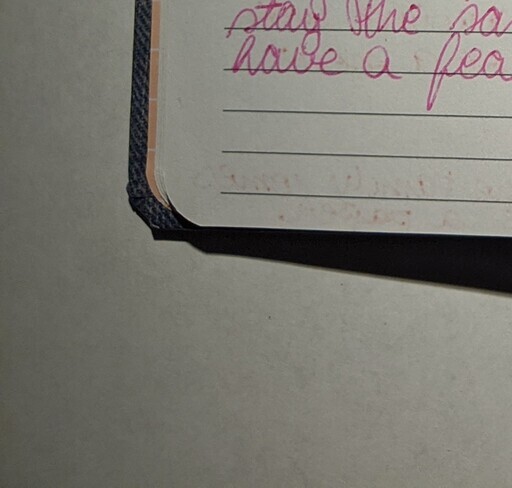 stay the sa
have a fea